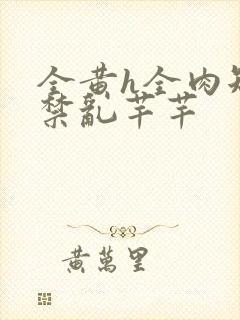 全黄h全肉短
禁乱芊芊
黄万里